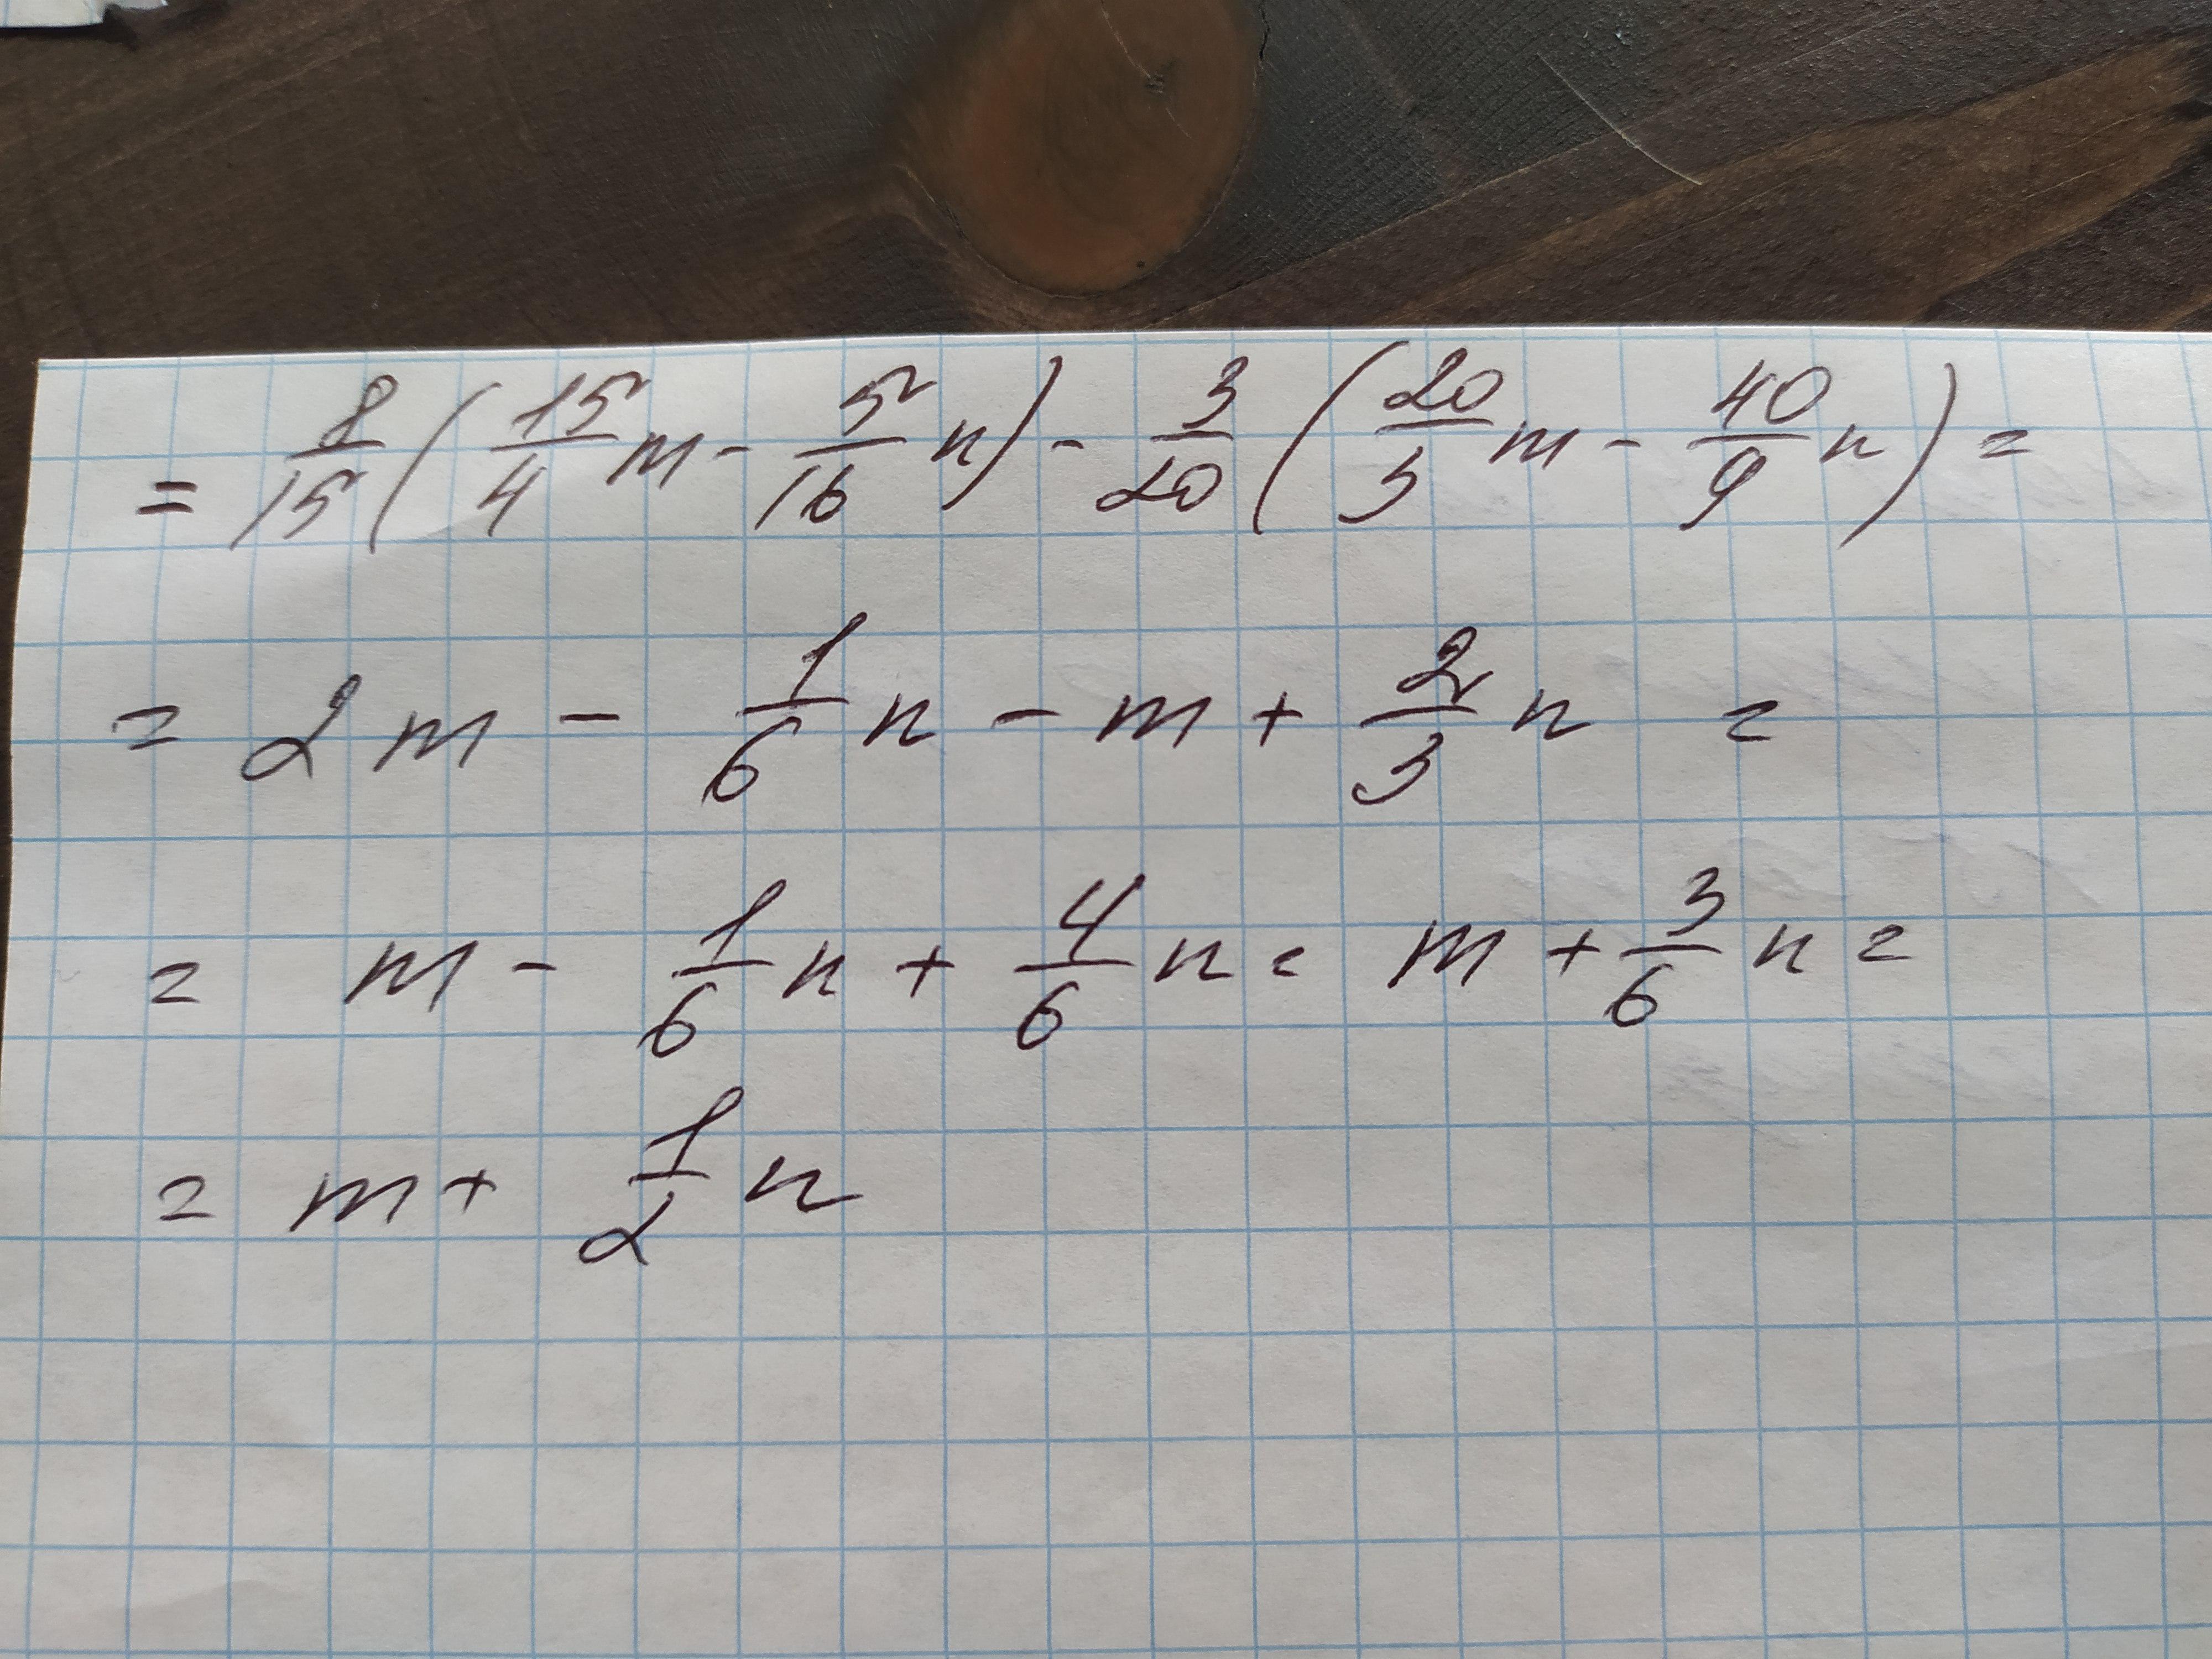 = 8/15 ( 15/4 m - 5/16 n ) - 3/20 ( 20/3 m - 40/9 n ) =
= 2m - 1/6 n - m + 2/3 n =
= m - 1/6 n + 4/6 n = m + 3/6 n =
= m + 1/2 n